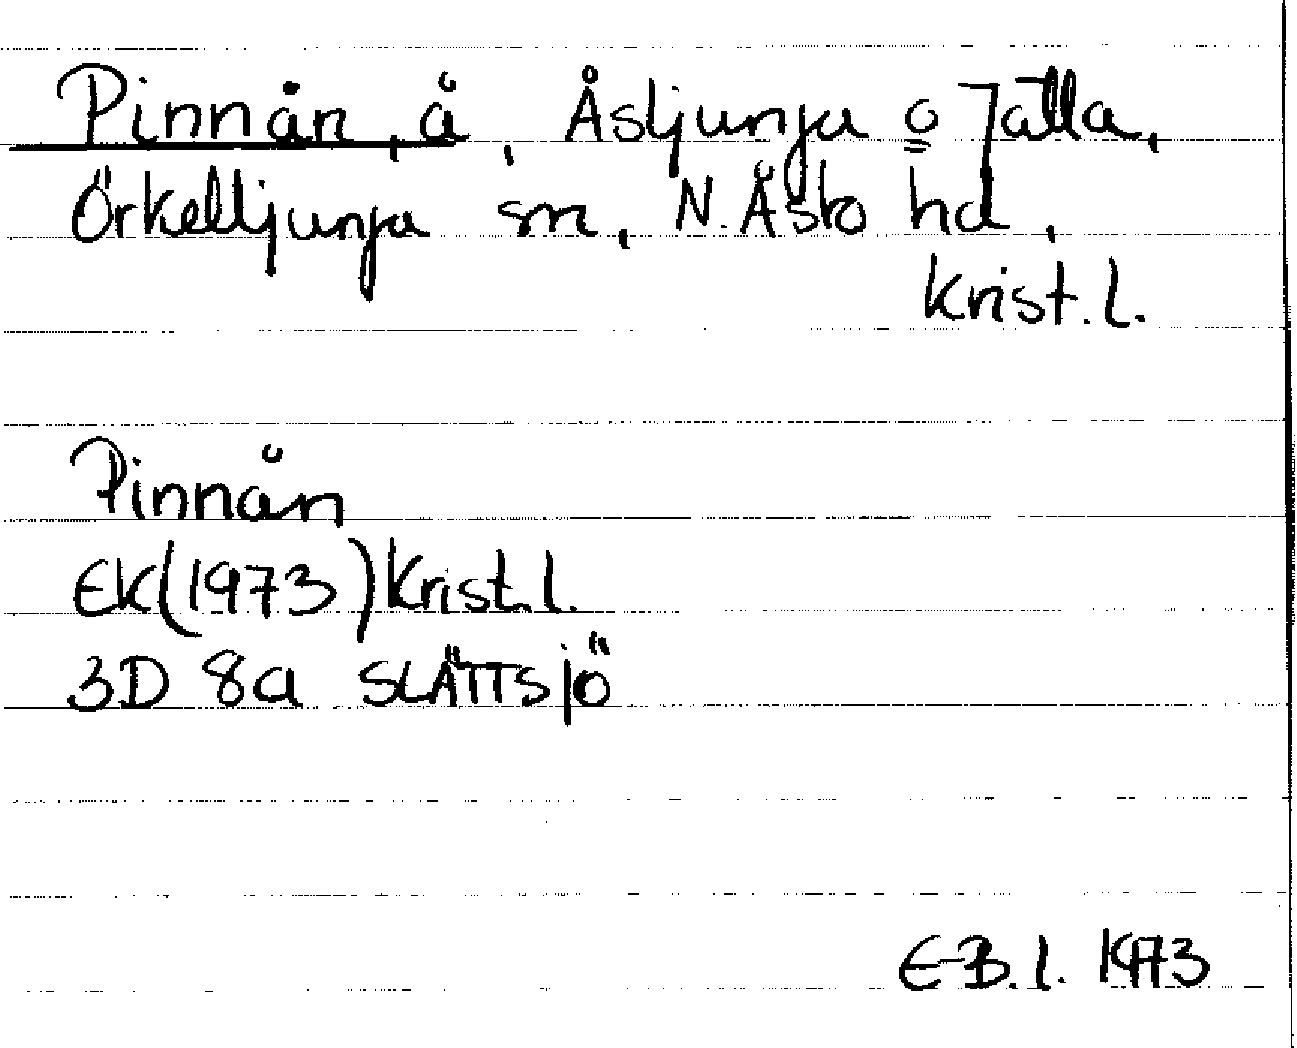 Pinnån, å, Åsljunga o Jälla,
Örkelljunga sn, N. Åsbo hd,
Krist. l.
Pinnån
EK(1973)Krist. l.
3D 8a SLÄTTSJÖ
E-B. l. 1973